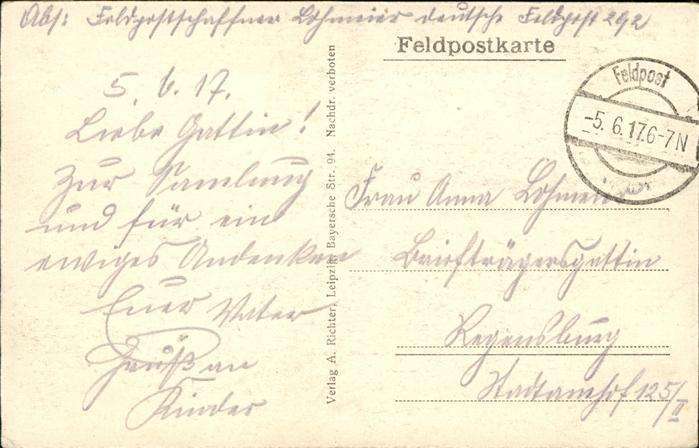 Abs: Feldpostschaffner Lohmeier deutsche Feldpost 292
Feldpostkarte
Feldpost
-5.6.17.6-7N
5. 6. 17.
Liebe Gattin!
Zur Samlung
und für ein
ewiges Andenken
Euer Vater
Gruß an
Kinder
Verlag A. Richter, Leipzig, Bayersche Str. 91. Nachdr. verboten
Frau Anna Lohmeier
Briefträgersgattin
Regensburg
Stadtamhof 125/II